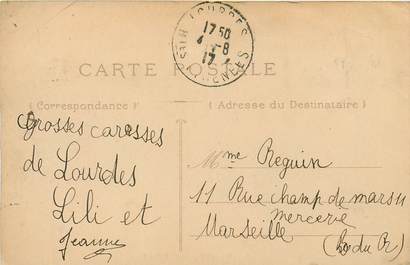 LOURDES
17 50
4 - 8
17
HTES PYRENEES
CARTE POSTALE
Correspondance
Adresse du Destinataire
Grosses caresses
de Lourdes
Lili et
Jeanne
Mme Reguin
11 Rue champ de mars 11
mercerie
Marseille
(B du R)